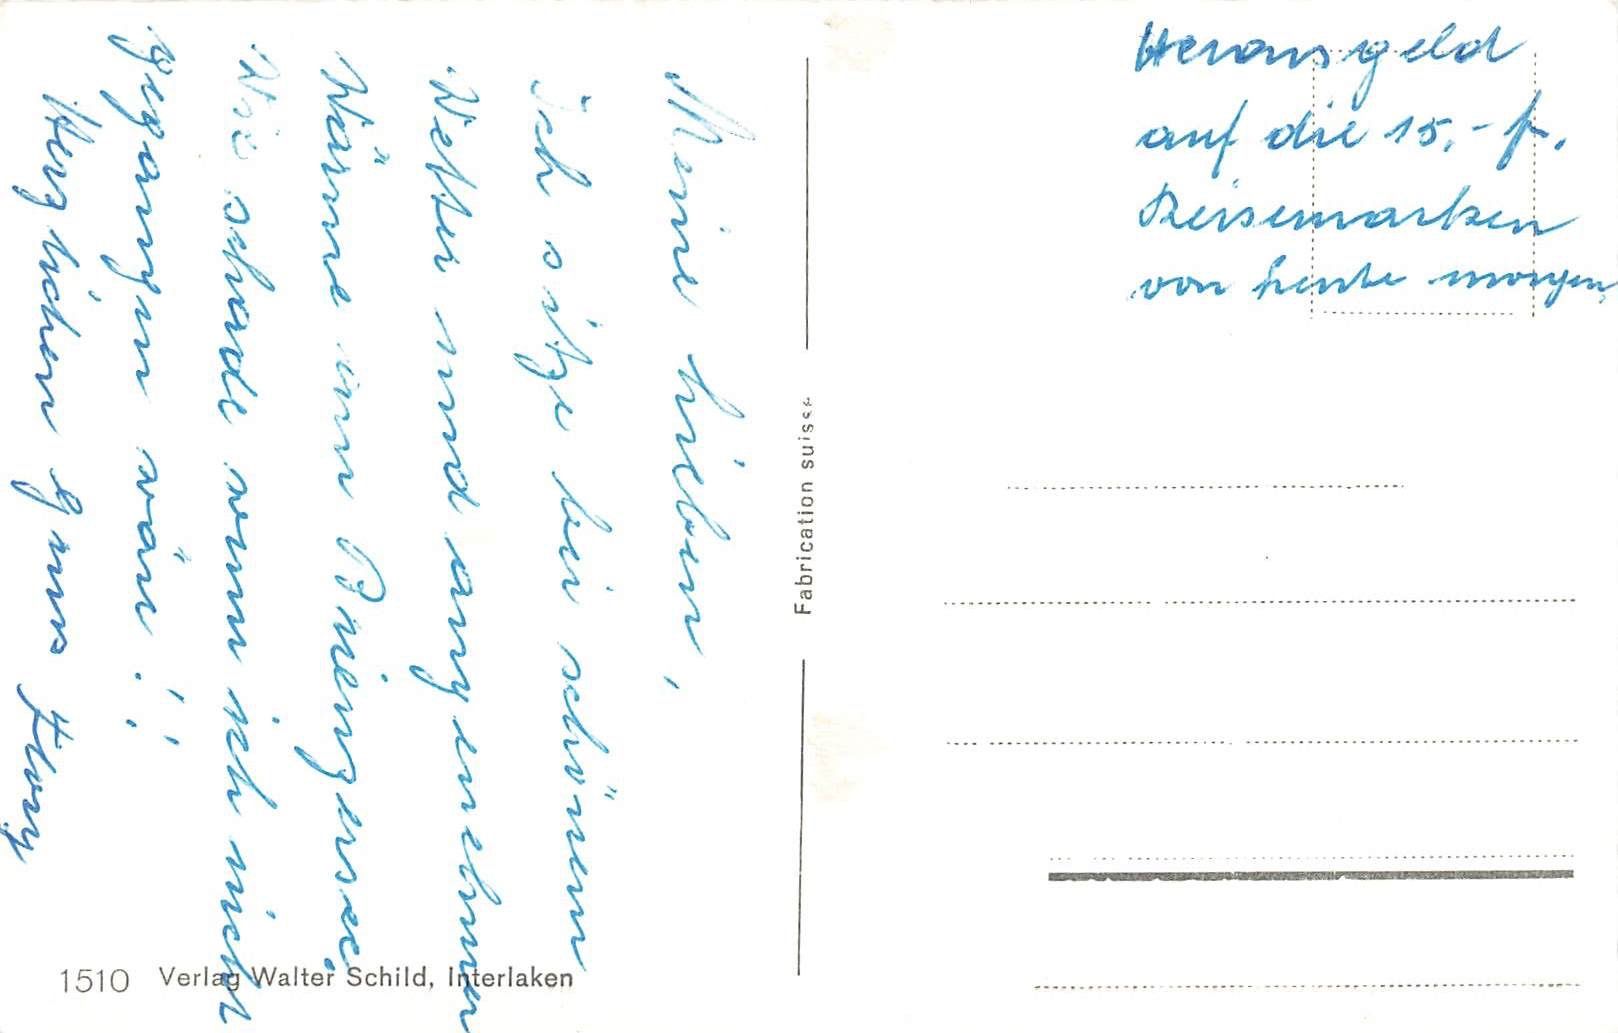 Meine Lieben,
Ich sitze bei schönem
Wetter und angenehmer
Wärme am Brienzersee.
Wie schade wenn ich nicht
gegangen wäre!!
Herzlichen Gruss
Herausgeld
auf die 15.- fr.
Reisemarken
von heute morgen
Fabrication suisse
1510 Verlag Walter Schild, Interlaken